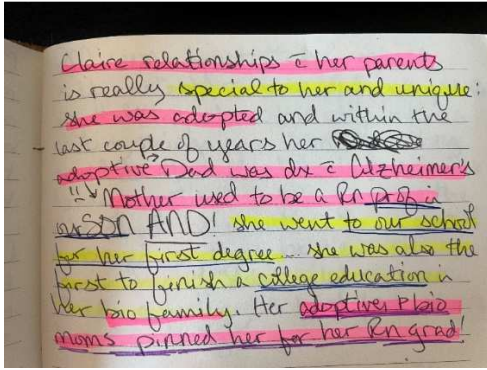 Claire relationships c̄ her parents
is really special to her and unique:
she was adopted and within the
last couple of years her
adoptive Dad was dx c̄ Alzheimer's
!! Mother used to be a Rn prof in
our SON AND! she went to our school
for her first degree... she was also the
first to finish a college education in
her bio family. Her adoptive & bio
moms pinned her for her Rn grad!